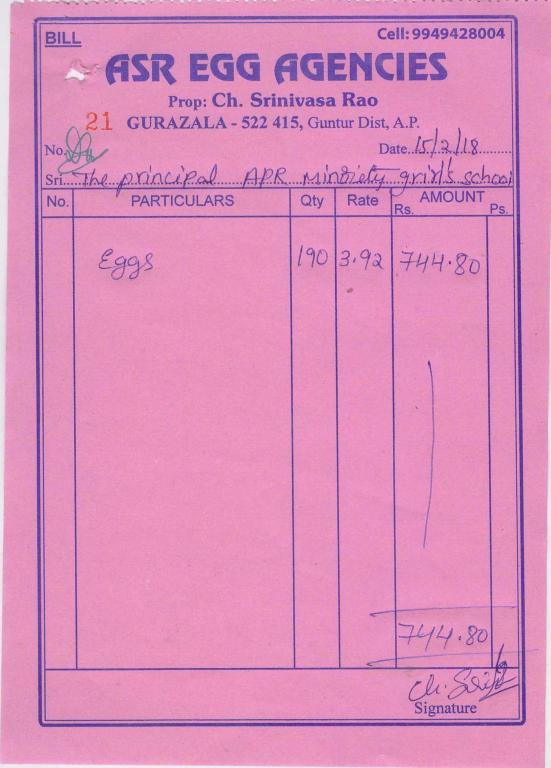 BILL
Cell: 9949428004
ASR EGG AGENCIES
Prop: Ch. Srinivasa Rao
21 GURAZALA - 522 415, Guntur Dist, A.P.
No. Date 15/2/18
Sri. The principal APR minoriety grirl's school
No. PARTICULARS Qty Rate AMOUNT
Rs. Ps.
Eggs 190 3.92 744.80
744.80
Signature